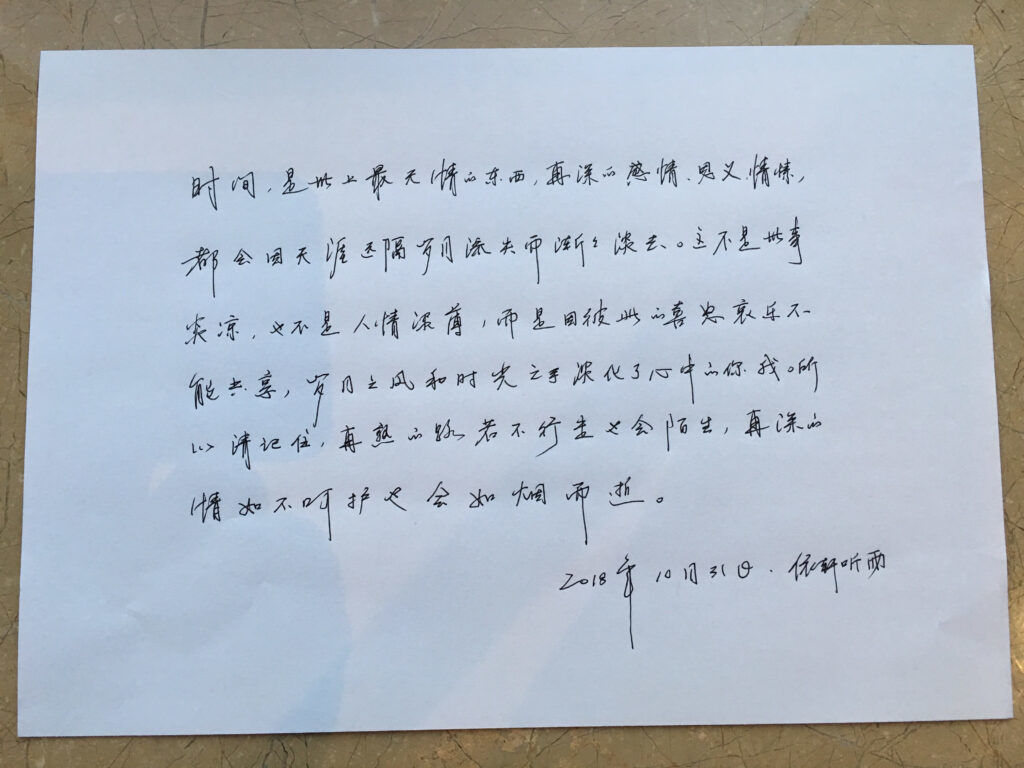 时间，是世上最无情的东西，再深的感情、恩义、情愫，
都会因天涯远隔岁月流失而渐々淡去。这不是世事
炎凉，也不是人情浓薄，而是因彼此的喜忽哀乐不
能共享，岁月之风和时光之手淡化了心中的你我。所
以请记住，再熟的路若不行走也会陌生，再深的
情如不呵护也会如烟而逝。
2018年10月31日．依轩听雨